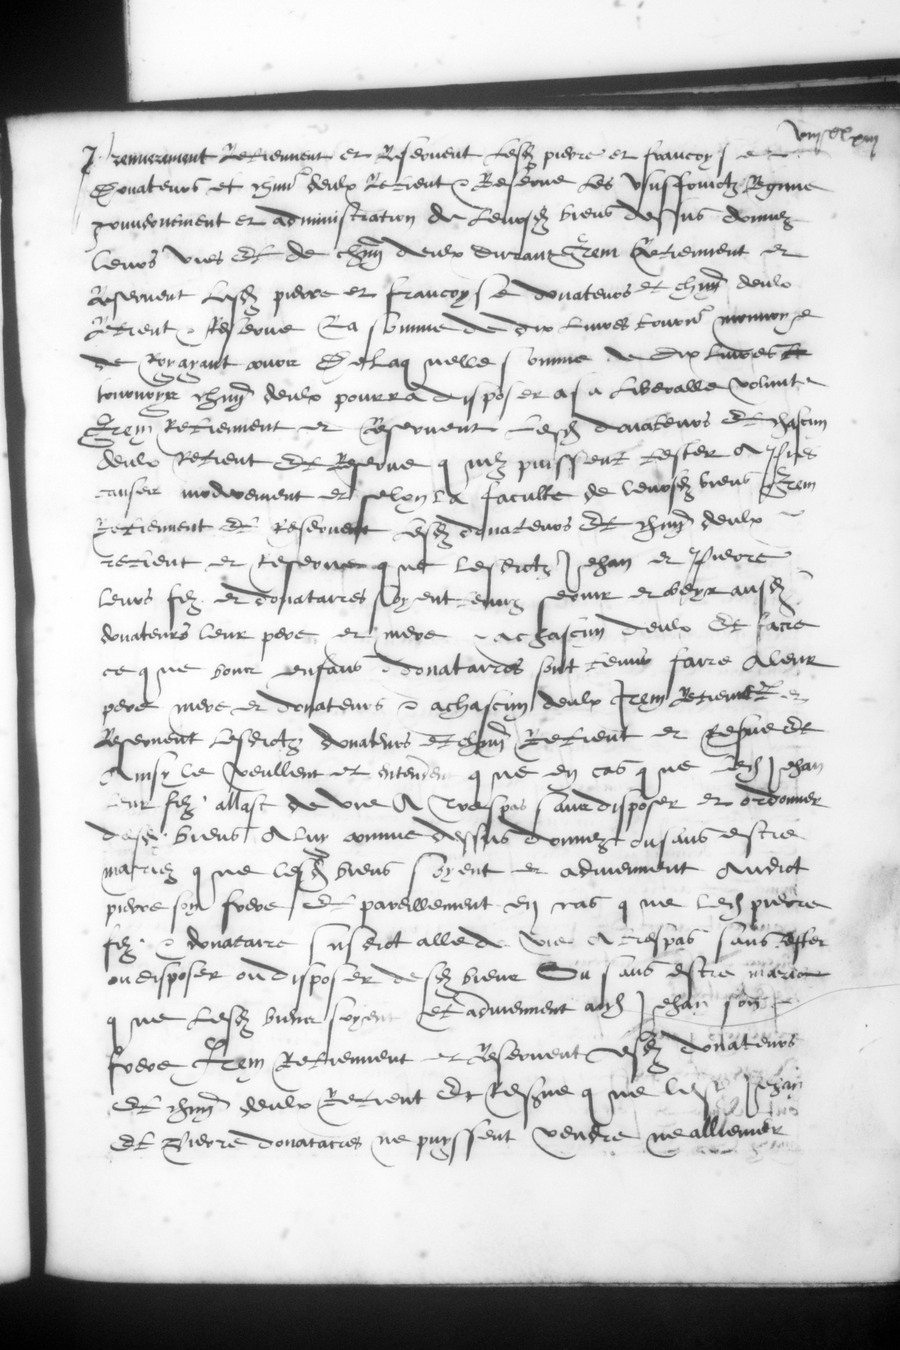 retiennent et Reservent lesd pierre et francoyse
donateurs et chun deulx Retient & Reserve les Usuffruictz Regime
gouvernement et administration de leursd biens dessus donnez
leurs vies Et de chun deulx durant Item Retiennent et
Reservent lesd pierre et francoyse donateurs et chun deulx
Retient & Reserve La somme de dix livres tourn monnoye
de Roy ayant cours De laquelle somme de dix livres
tournoys chun deulx pourra disposer a sa liberalle volunte
Item Retiennent et Reservent lesd donateurs Et chascun
deulx Retient Et Reserve quilz puissent tester A pies
causes moderement et selon La faculte de leursd biens Item
Retiennent Et Reservent lesd donateurs Et chun deulx
retient et Reserve que lesdictz Jehan et Pierre
leurs filz et donataires soyent tenuz servir et obeyr ausd
donateurs leur pere et mere & a chascun deulx Et faire
ce que bons enfans donataires sont tenus faire A leur
pere mere et donateurs & a chascun deulx Item Retiennent et
Reservent lesdictz donateurs et chun Retient et Reserve Et
Ainsy le veullent et entendent que en cas que led Jehan
leur filz allast de vie A trespas sans disposer et ordonner
desd biens A luy comme dessus donnez ou sans estre
mariez que lesd biens soyent et adviennent Audict
pierre son frere Et pareillement en cas que led pierre
filz & donataire susdict alle de vie A trespas sans tester
ou disposer ou disposer desd biens Ou sans estre marie
que lesd biens soyent Et adviennent aud Jehan son
frere Item Retiennent et Reservent lesd donateurs
Et chun deulx Retient Et Reserve que lesd Jehan
Et Pierre donataires ne puyssent vendre ne alliener